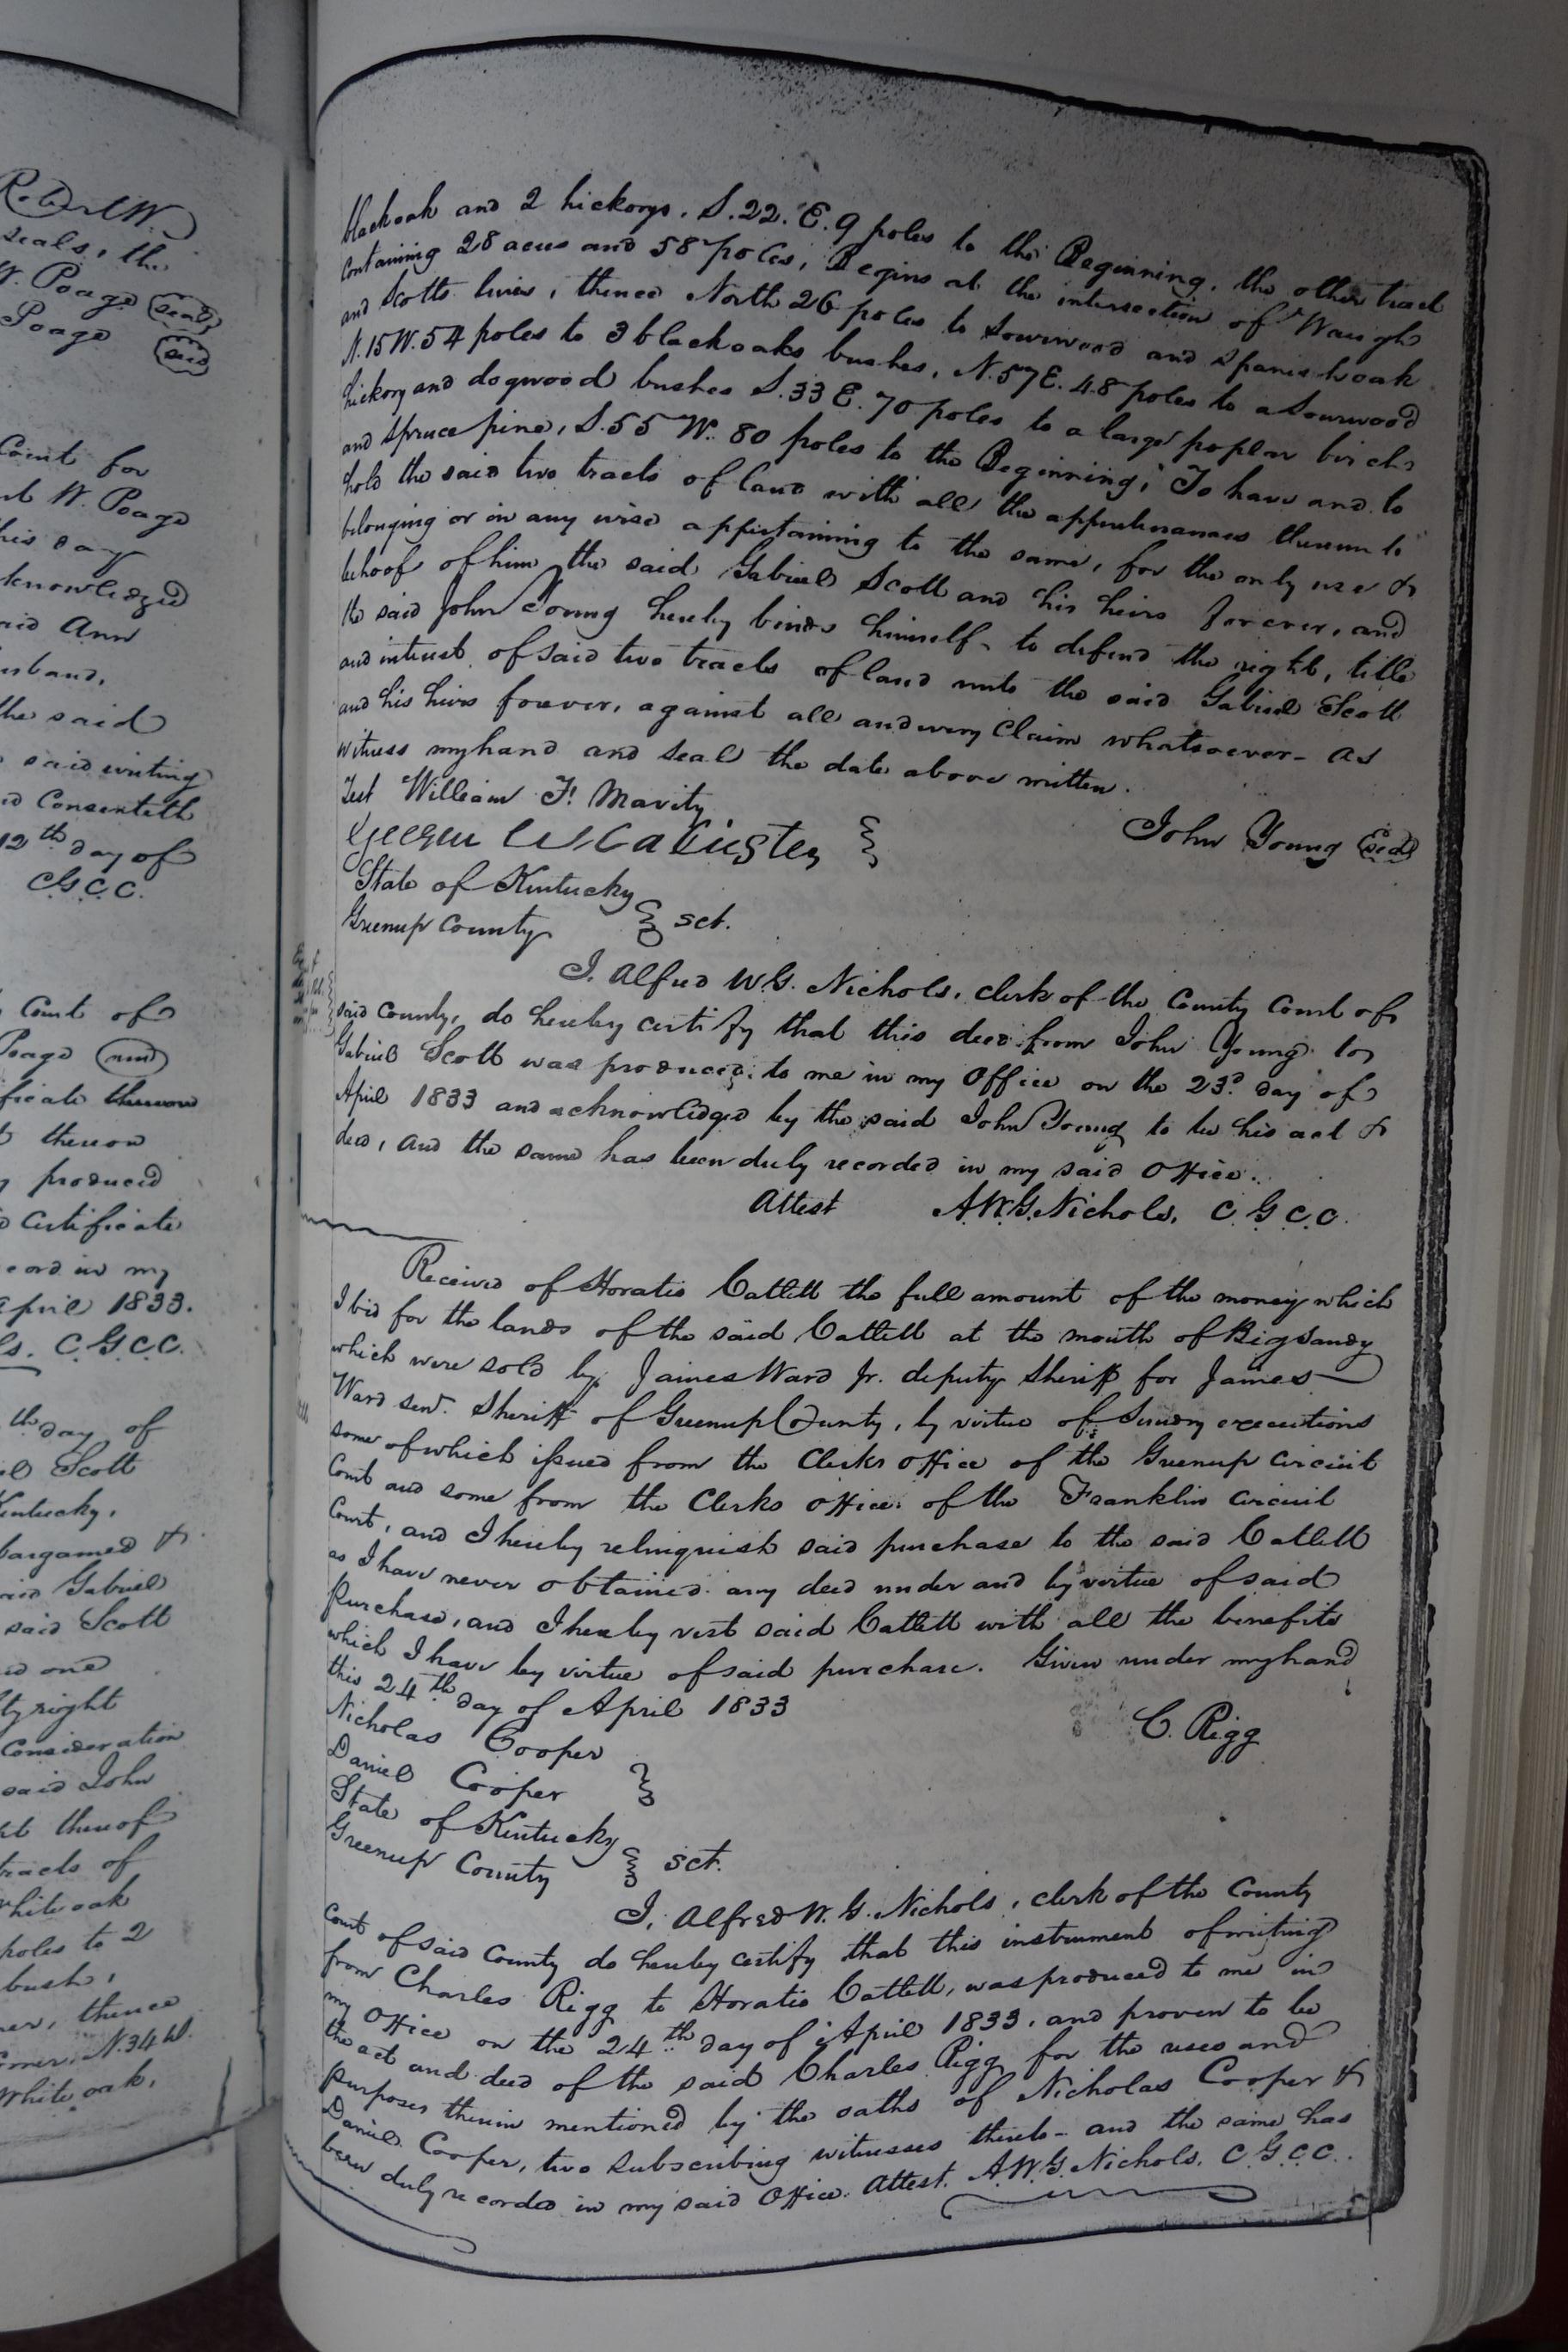 Robert W.
seals, the
W. Poage (seal)
Poage (seal)
Court for
W. Poage
his day
knowledged
said Ann
husband,
the said
said writing
Consenteth
12th day of
C.G.C.C.
Court of
Poage (and)
thereon
thereon
produced
Certificate
in my
April 1833.
C.G.C.C.
th day of
Scott
Kentucky,
bargained &
said Gabriel
said Scott
one
right
Consideration
said John
thereof
tracts of
white oak
poles to 2
bush,
thence
N.34 W.
White oak,
blackoak and 2 hickorys, S.22. E. 9 poles to the Beginning, the other tract
containing 28 acres and 58 poles, Begins at the intersection of Waughs
and Scotts lines, thence North 26 poles to Sourwood and Spanish oak
N.15 W. 54 poles to 3 blackoaks bushes, N.57 E. 48 poles to a Sourwood
hickory and dogwood bushes S.33 E. 70 poles to a large poplar birch
and spruce pine, S.55 W. 80 poles to the Beginning; To have and to
hold the said two tracts of land with all the appurtenances thereunto
belonging or in any wise appertaining to the same, for the only use &
behoof of him the said Gabriel Scott and his heirs forever, and
the said John Young hereby binds himself to defend the right, title
and interest of said two tracts of land unto the said Gabriel Scott
and his heirs forever, against all and every claim whatsoever - as
witness my hand and seal the date above written.
Test William F. Mavity
John Young (Seal)
State of Kentucky
Greenup County } sct.
I. Alfred W.G. Nichols, clerk of the County Court of
said County, do hereby certify that this deed from John Young to
Gabriel Scott was produced to me in my Office on the 23d. day of
April 1833 and acknowledged by the said John Young to be his act &
deed, and the same has been duly recorded in my said Office.
Attest A.W.G. Nichols, C G C C.
Received of Horatio Catlett the full amount of the money which
I bid for the lands of the said Catlett at the mouth of Big Sandy
which were sold by James Ward Jr. deputy Sheriff for James
Ward senr. Sheriff of Greenup County, by virtue of Sundry executions
some of which issued from the Clerks office of the Greenup Circuit
Court and some from the Clerks Office of the Franklin circuit
Court, and I hereby relinquish said purchase to the said Catlett
as I have never obtained any deed under and by virtue of said
Purchase, and I hereby vest said Catlett with all the benefits
which I have by virtue of said purchase. Given under my hand
this 24th day of April 1833
C. Rigg
Nicholas Cooper
Daniel Cooper }
State of Kentucky
Greenup County } sct.
I, Alfred W. G. Nichols, clerk of the County
Court of said County do hereby certify that this instrument of writing
from Charles Rigg to Horatio Catlett, was produced to me in
my Office on the 24th day of April 1833, and proven to be
the act and deed of the said Charles Rigg for the uses and
purposes therein mentioned by the oaths of Nicholas Cooper &
Daniel Cooper, two subscribing witnesses thereto - and the same has
been duly recorded in my said Office. Attest. A.W.G. Nichols. C G C C.